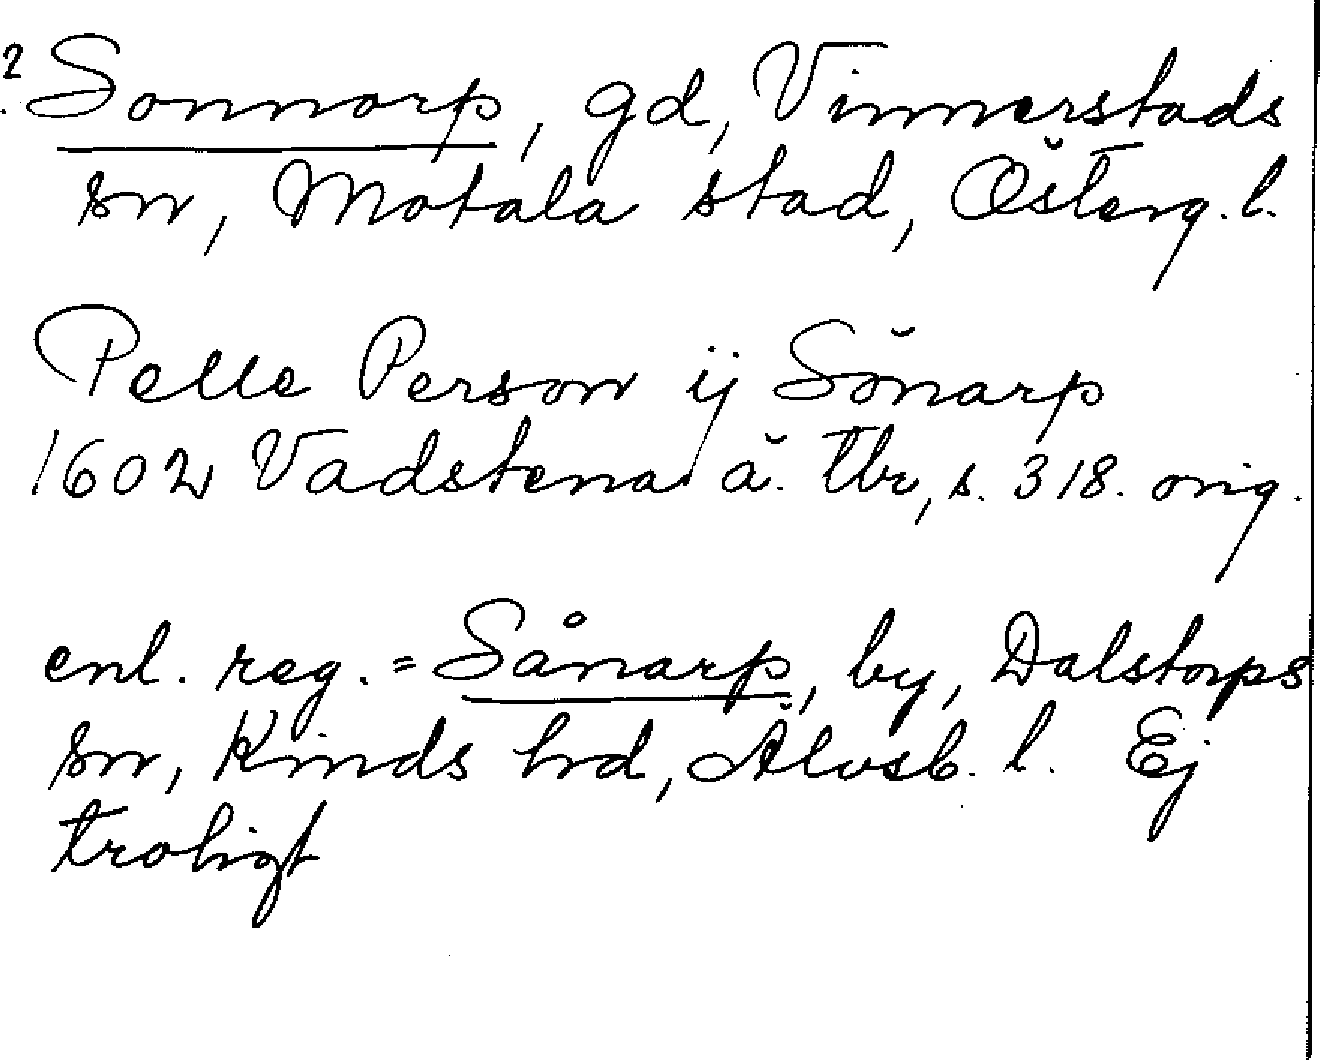 2 Sonnorp, gd, Vinnerstads
sn, Motala stad, Österg. l.
Pelle Person ij Sönarp
1602 Vadstena ä. tbr, s. 318. orig.
enl. reg. = Sånarp, by, Dalstorps
sn, Kinds hd, Älvsb. l. Ej
troligt